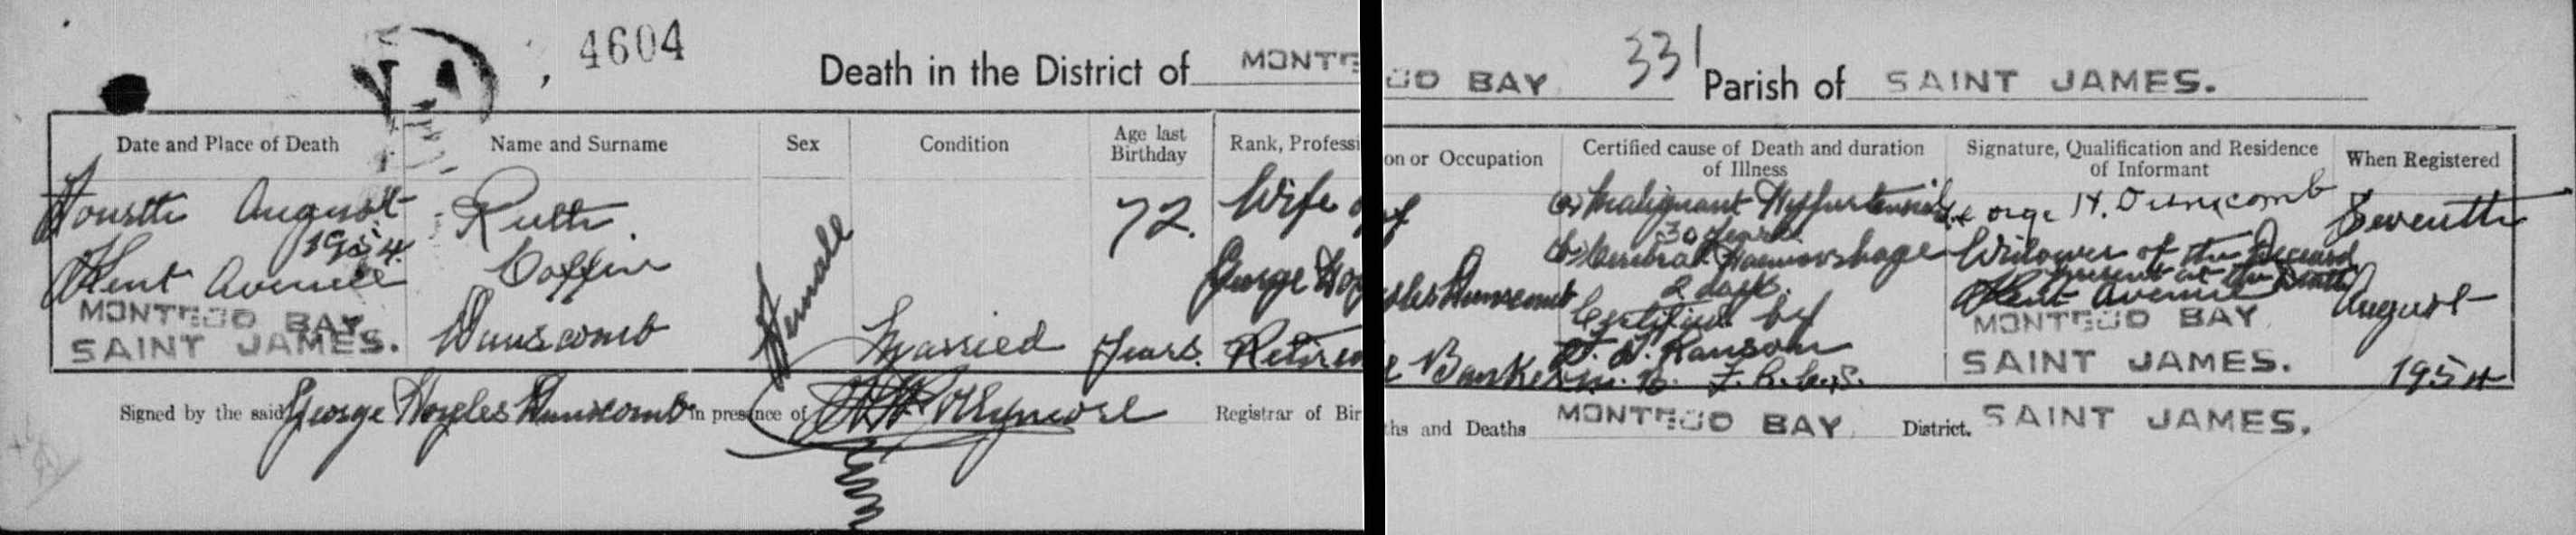 4604
Death in the District of MONTEGO BAY 331 Parish of SAINT JAMES.
Date and Place of Death
Name and Surname
Sex
Condition
Age last Birthday
Rank, Profession or Occupation
Certified cause of Death and duration of Illness
Signature, Qualification and Residence of Informant
When Registered
Fourth August
1954.
Kent Avenue
MONTEGO BAY
SAINT JAMES.
Ruth
Coffin
Dunscomb
Female
Married
72.
Years.
Wife of
George Hoyles Dunscomb
Retired Banker
(a) Malignant Hypertension
30 years
(b) Cerebral Haemorrhage
2 days.
Certified by
Ransom
M.B. F.R.C.S.
George H. Dunscomb
Widower of the Deceased
present at the Death
Kent Avenue
MONTEGO BAY
SAINT JAMES.
Seventh
August
1954
Signed by the said George Hoyles Dunscomb in presence of
Registrar of Births and Deaths MONTEGO BAY District. SAINT JAMES.